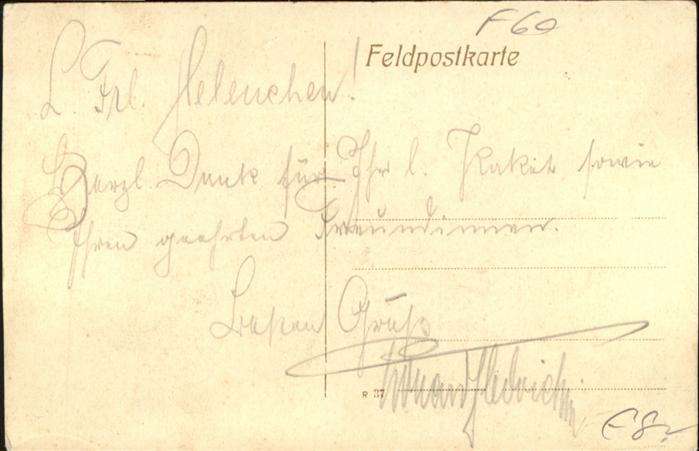 F 60
Feldpostkarte
L. Frl. Helenchen!
Herzl. Dank für Ihr l. Paket sowie
Ihren geehrten Freundinnen.
Gruß
R 37
E 8,-